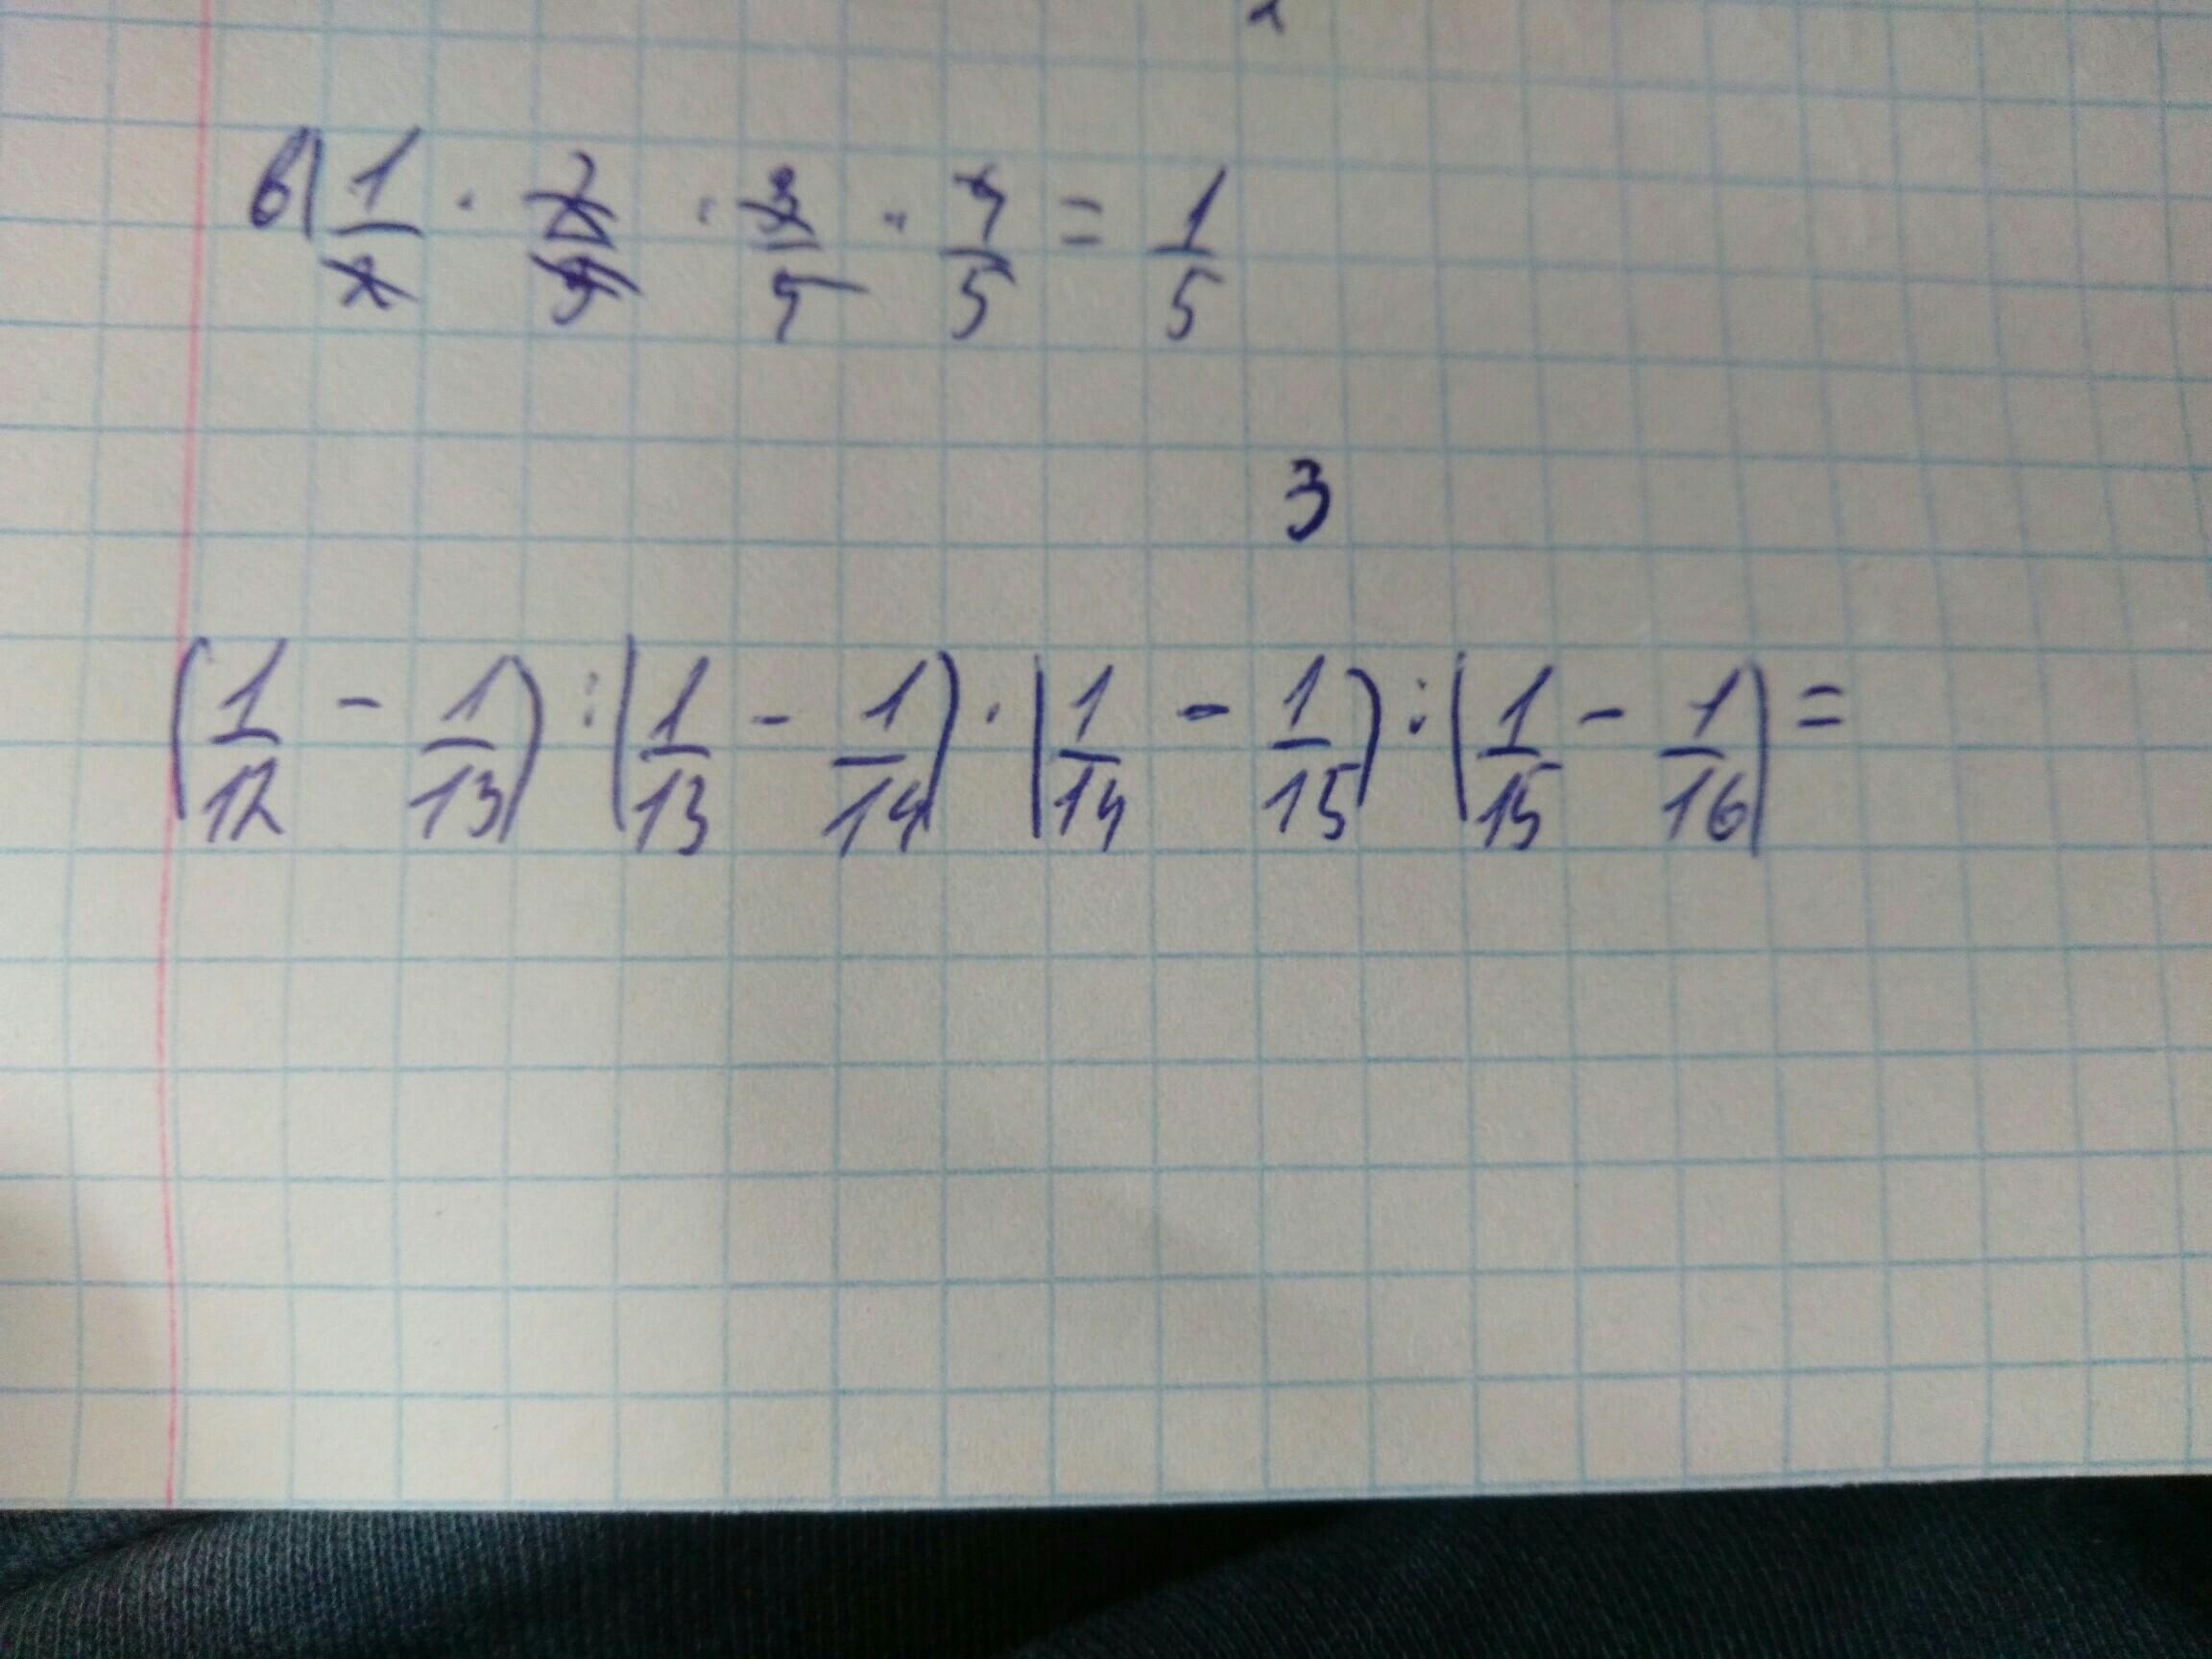 в) 1/2 · 2/3 · 3/4 · 4/5 = 1/5
3
(1/12 - 1/13) : (1/13 - 1/14) · (1/14 - 1/15) : (1/15 - 1/16) =